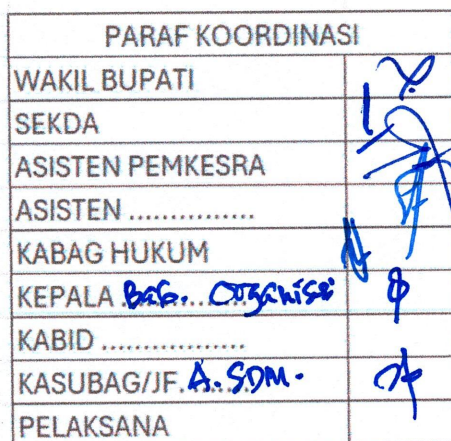 PARAF KOORDINASI
WAKIL BUPATI
SEKDA
ASISTEN PEMKESRA
ASISTEN ...............
KABAG HUKUM
KEPALA Bag. Organisasi
KABID .................
KASUBAG/JF. A. SDM.
PELAKSANA